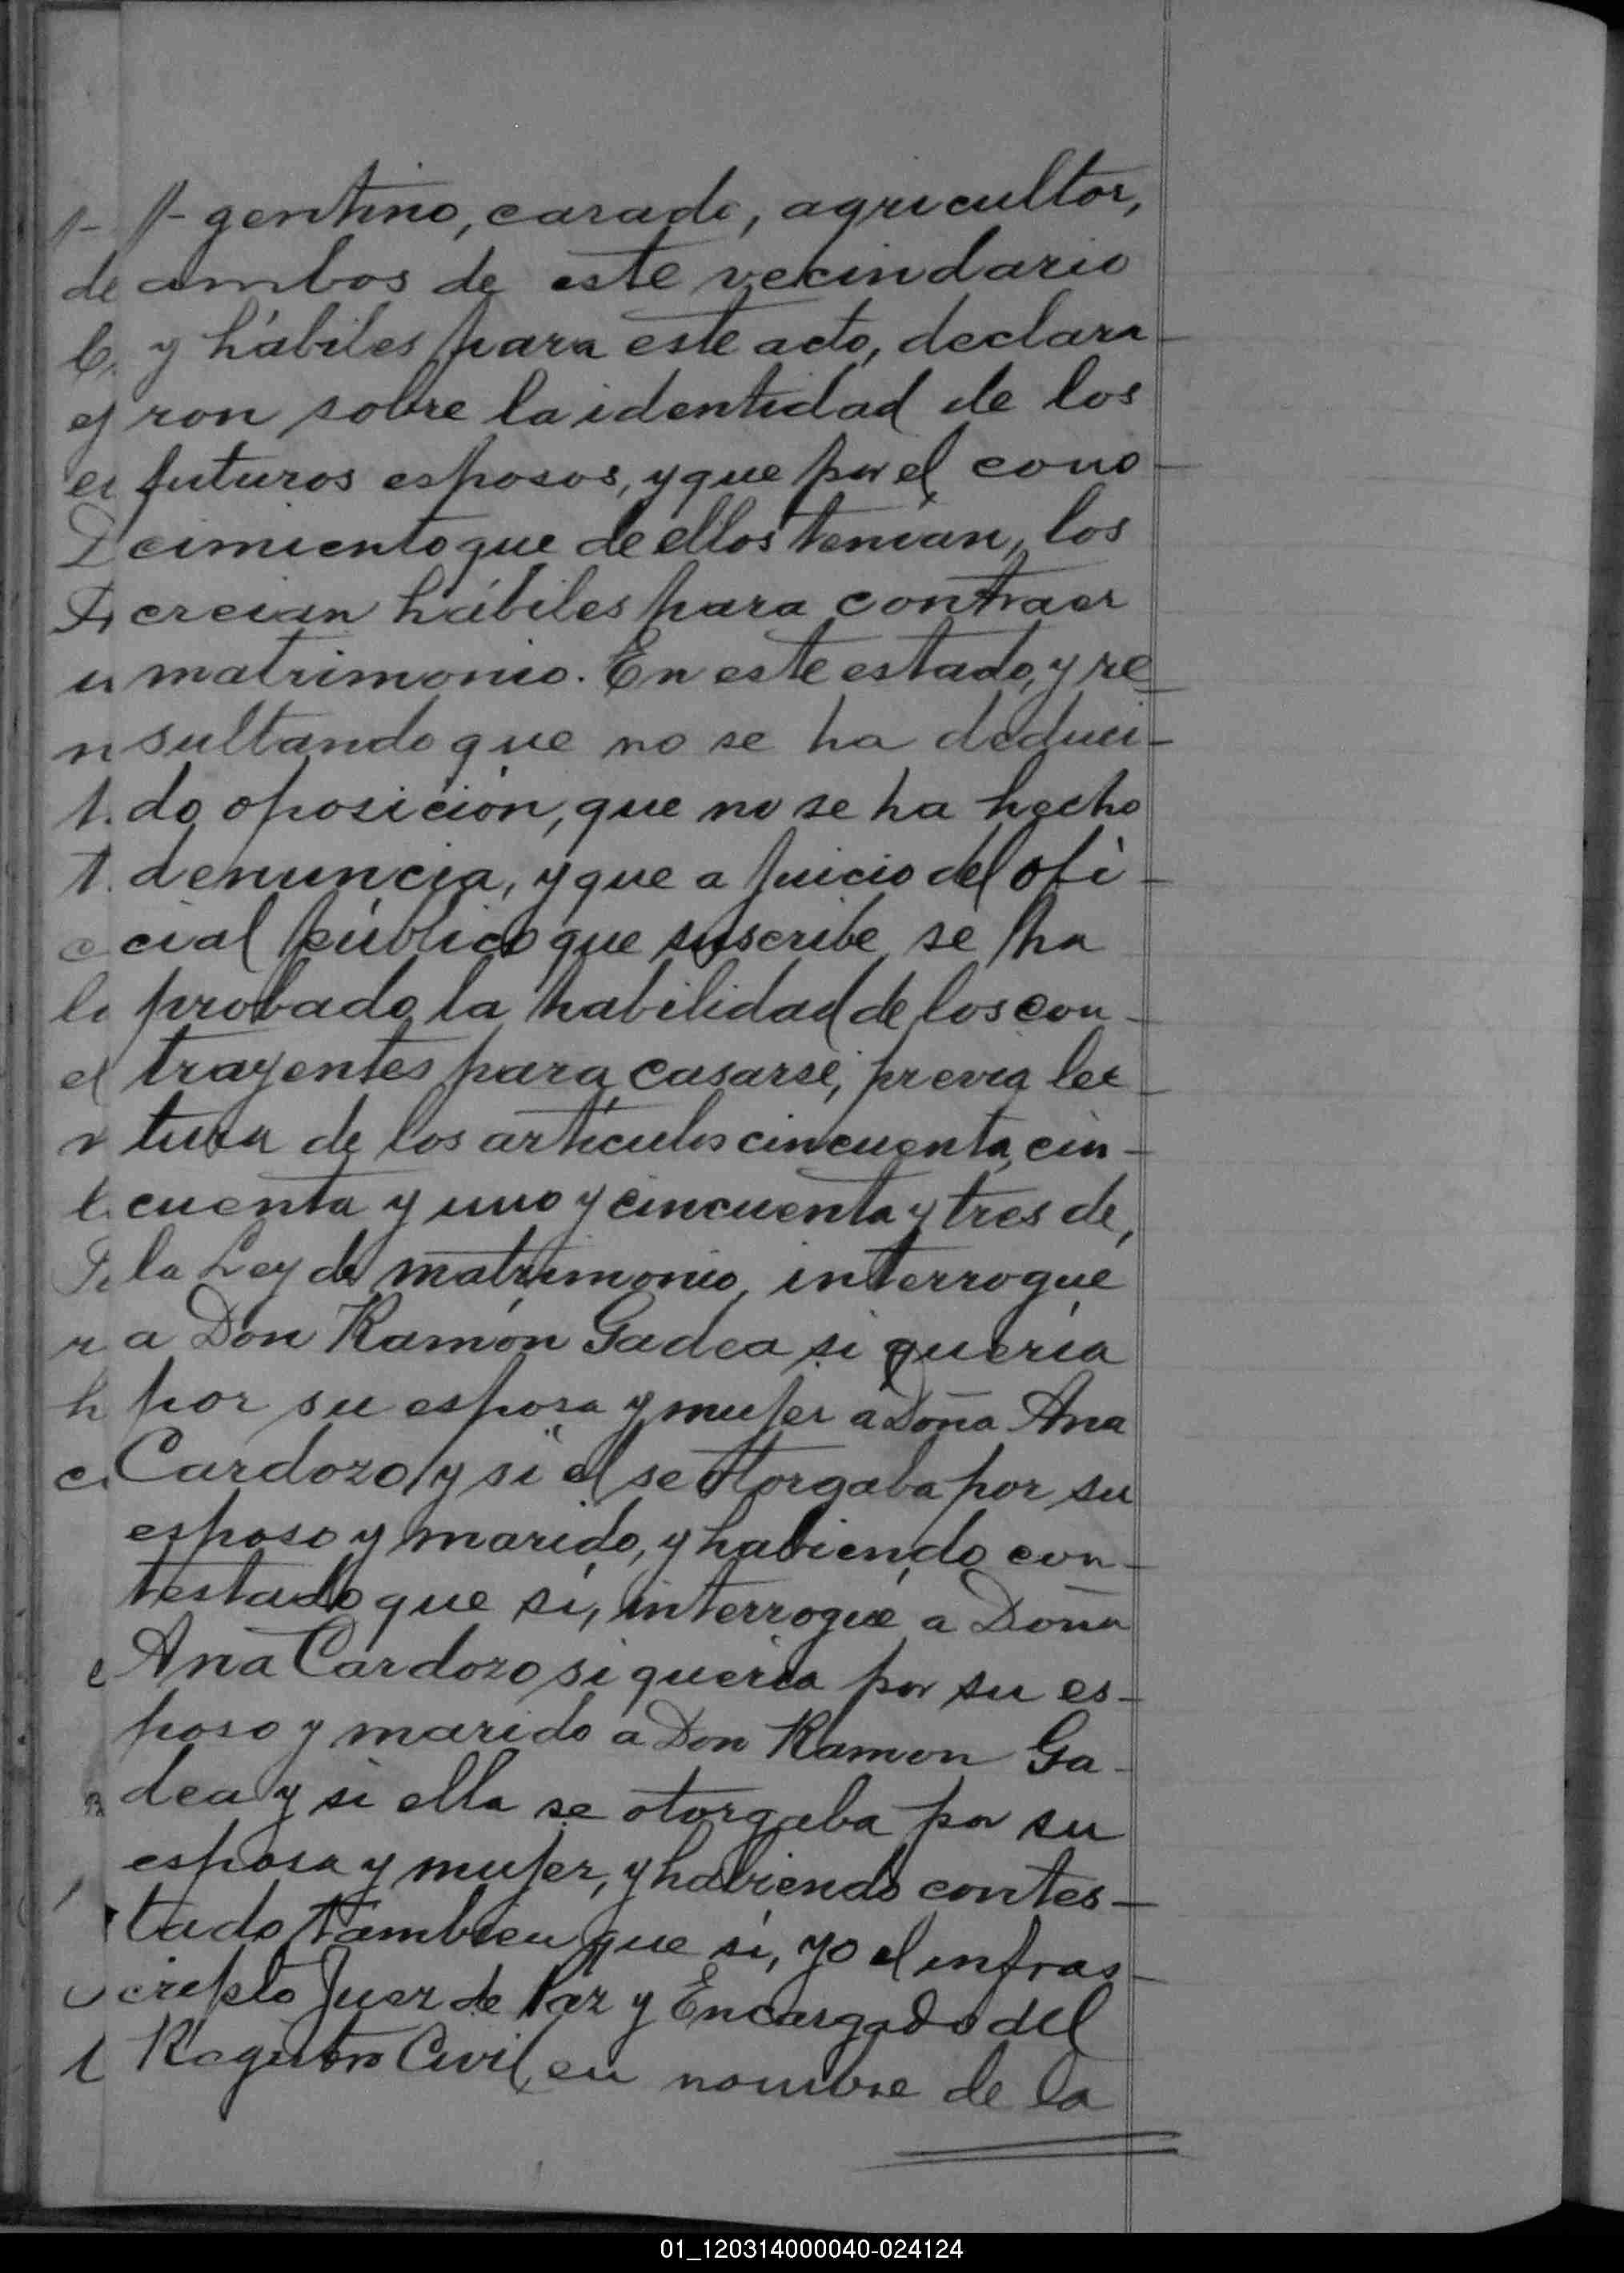 //- gentino, casado, agricultor,
ambos de este vecindario
y hábiles para este acto, declara-
ron sobre la identidad de los
futuros esposos, y que por el cono-
cimiento que de ellos tenían, los
creian hábiles para contraer
matrimonio. En este estado, y re-
sultando que no se ha deduci-
do oposición, que no se ha hecho
denuncia, y que a juicio del ofi-
cial público que suscribe se ha
probado la habilidad de los con-
trayentes para casarse, previa lec-
tura de los artículos cincuenta, cin-
cuenta y uno y cincuenta y tres de
la Ley de matrimonio, interrogué
a Don Ramón Gadea si quería
por su esposa y mujer a Doña Ana
Cardozo y si él se otorgaba por su
esposo y marido, y habiendo con-
testado que sí, interrogué a Doña
Ana Cardozo si quería por su es-
poso y marido a Don Ramon Ga-
dea y si ella se otorgaba por su
esposa y mujer, y habiendo contes-
tado tambien que sí, yo el infras-
cripto Juez de Paz y Encargado del
Registro Civil en nombre de la
01_120314000040-024124